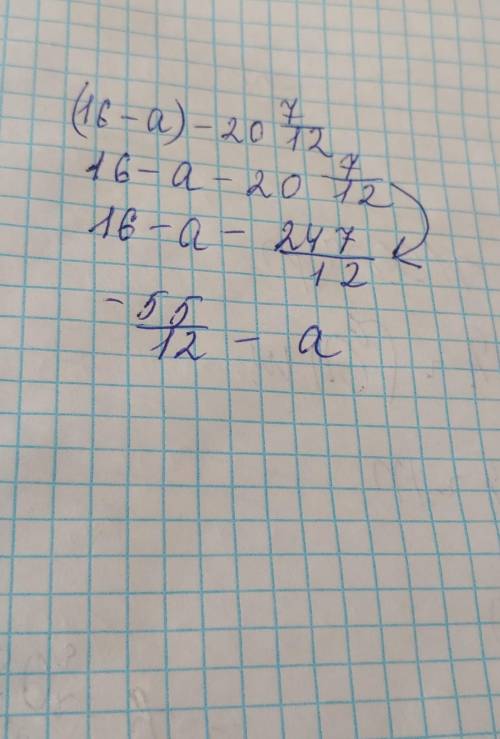 (16 - a) - 20 7/12
16 - a - 20 7/12
16 - a - 247/12
- 55/12 - a